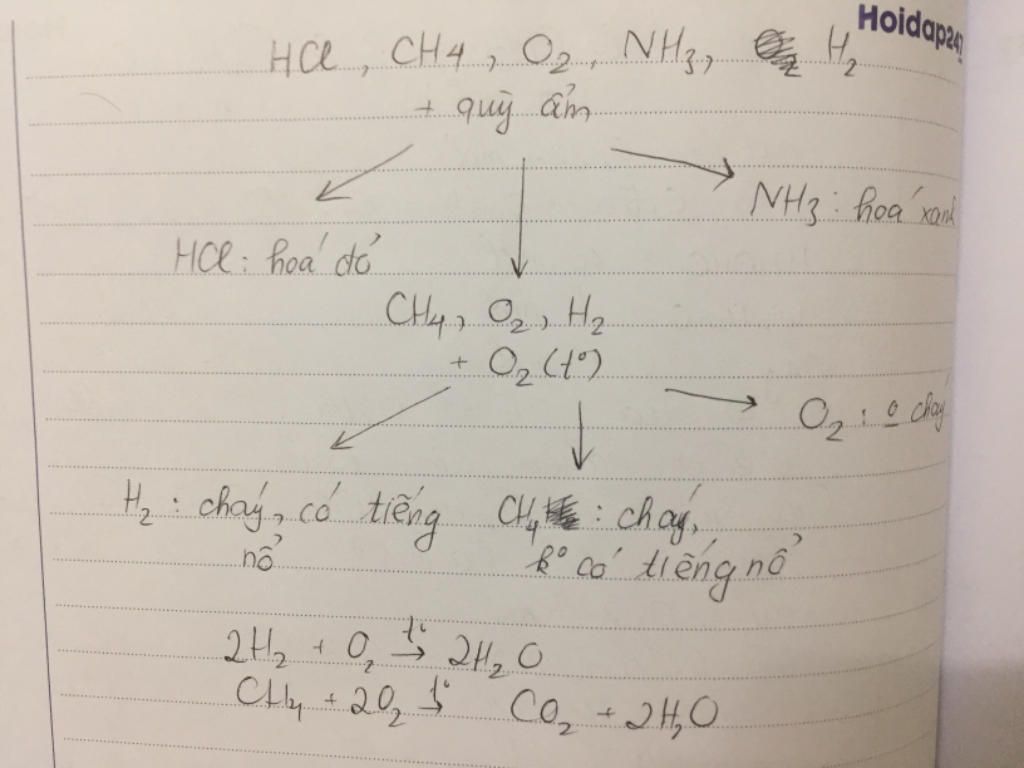 Hoidap247
HCl, CH4, O2, NH3, H2
+ quỳ ẩm
NH3: hoá xanh
HCl: hoá đỏ
CH4, O2, H2
+ O2 (t°)
O2: o cháy
H2: cháy, có tiếng nổ
CH4: cháy, k° có tiếng nổ
2H2 + O2 t°→ 2H2O
CH4 + 2O2 t°→ CO2 + 2H2O